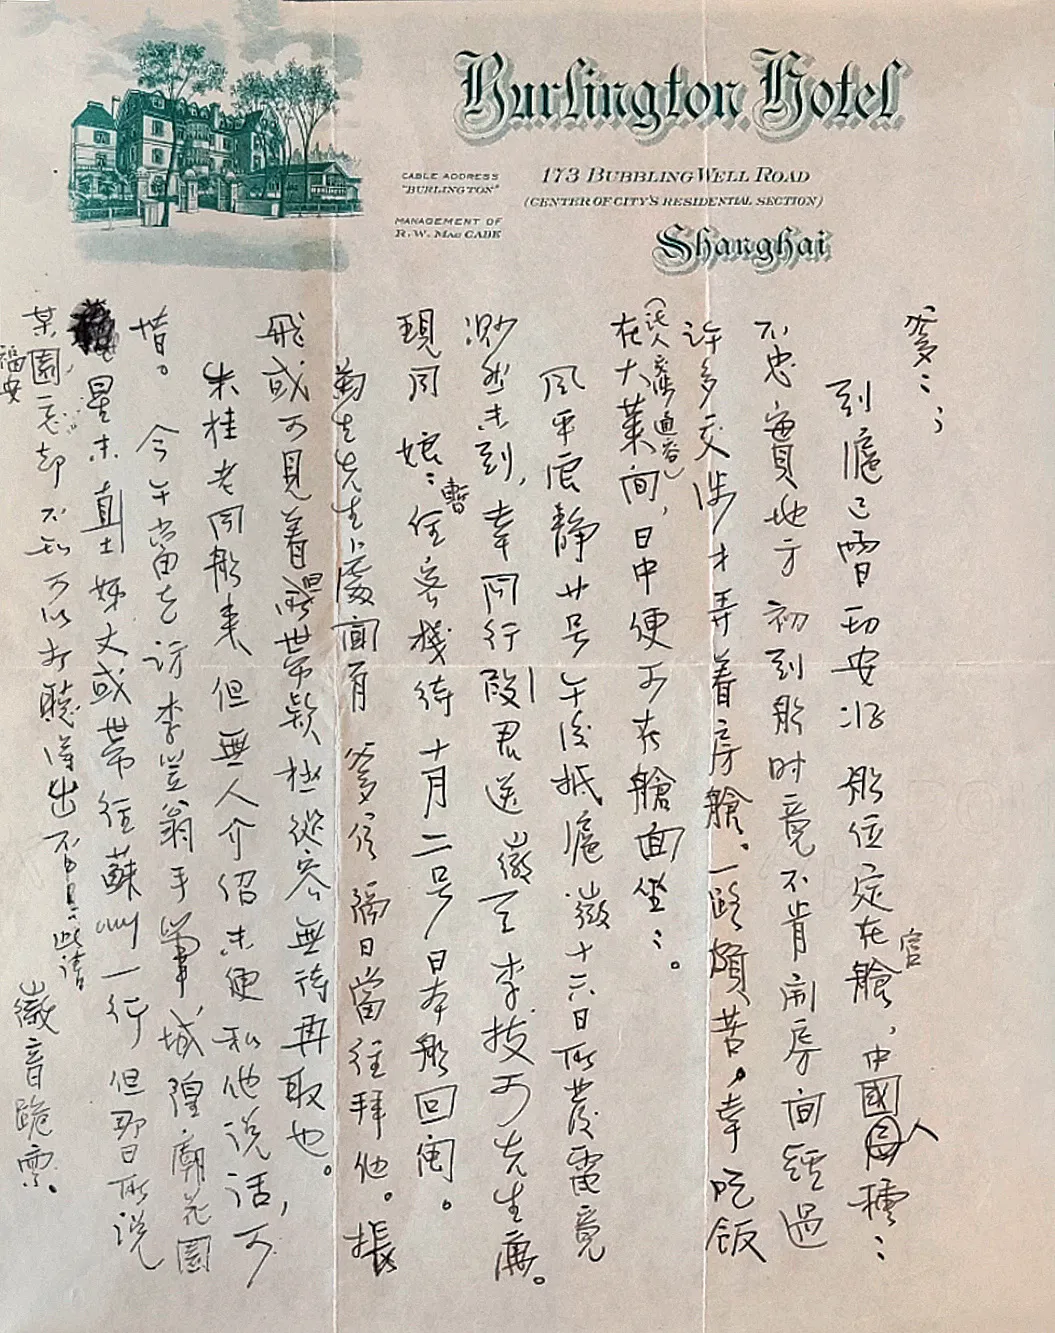 Burlington Hotel
CABLE ADDRESS
"BURLINGTON"
MANAGEMENT OF
R. W. MAC CABE
173 BUBBLING WELL ROAD
(CENTER OF CITY'S RESIDENTIAL SECTION)
Shanghai
爹：；
到滬已電 安 船位定在官艙、中國人種：
不忠實地方初到船時竟不肯開房間經過
許多交涉才弄着房艙。一路頗苦。幸吃飯
在大菜間，日中便可在艙面坐：。
風平浪靜廿号午後抵滬徽十六日所發電竟
渺然未到，幸同行段君送徽至李拔可先生寓。
現同娘：暫住客棧待十月二号日本船回闽。
菊生先生處聞有爹信 隔日當往拜他。振
飛或可見着 世帶 極從容無待再取也。
朱桂老同船來但無人介紹未便和他說話，可
惜。今午當去訪李 翁手筆，城隍廟花園
是朱直士姊丈或帶往蘇州一行但那日所說
某園，忘却不知可以打聽得出否 此請
福安
徽音跪禀。